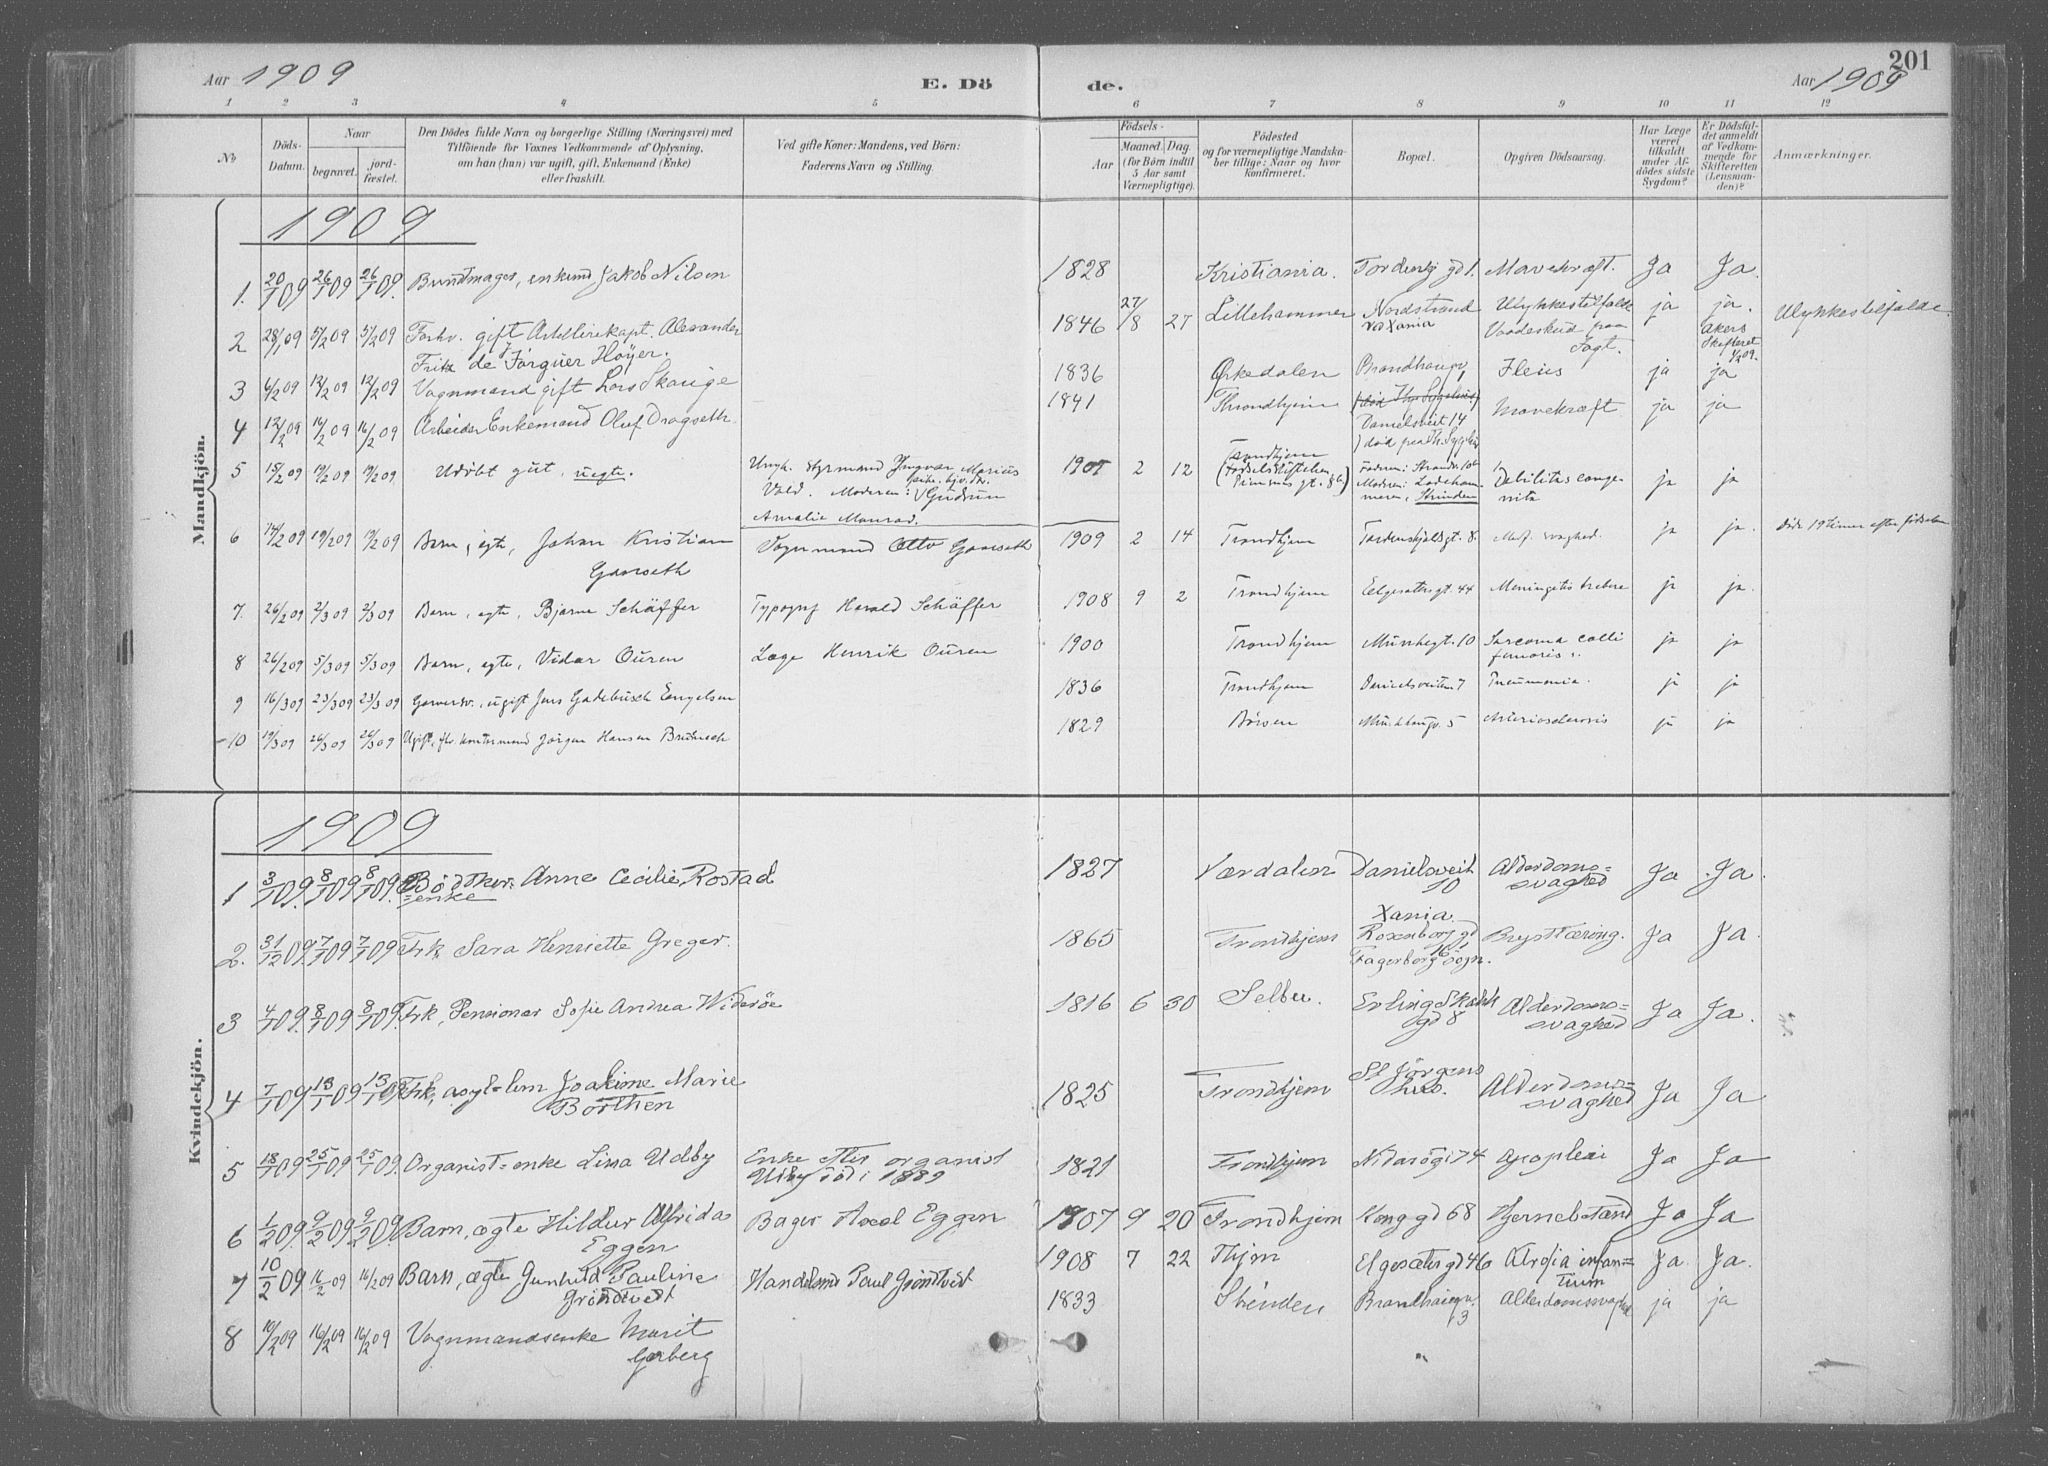 201
Aar 1909 E. Döde. Aar 1909
1 2 3 4 5 6 7 8 9 10 11 12
No
Döds-Datum.
Naar
begravet.
jord-fæstet.
Den Dödes fulde Navn og borgerlige Stilling (Næringsvei) med
Tilföiende for Voxnes Vedkommende af Oplysning,
om han (hun) var ugift, gift, Enkemand (Enke)
eller fraskilt.
Ved gifte Koner: Mandens, ved Börn:
Faderens Navn og Stilling.
Födsels-
Aar
Maaned. Dag
(for Börn indtil
5 Aar samt
Værnepligtige).
Födested
og for værnepligtige Mandska-
ber tillige: Naar og hvor
konfirmeret.
Bopæl.
Opgiven Dödsaarsag.
Har Læge
været
tilkaldt
under Af-
dödes sidste
Sygdom?
Er Dödsfal-
det anmeldt
af Vedkom-
mende for
Skifteretten
(Lensman-
den)?
Anmærkninger.
Mandkjön.
1909
1. 20/1 09 26/1 09 26/1 09. Bundtmager, enkemd Jakob Nilsen 1828 Kristiania. gd 1. Mavekræft. Ja Ja.
2 28/1 09 5/2 09 5/2 09 Forhv. gift Artillerikapt. Alexander
Fritz de Høyer. 1846 27/8 27 Lillehammer Nordstrand
ved Xania Ulykkestilfælde
Vaadeskud paa
Jagt. ja ja.
Akers
Skifteret
Ulykkestilfælde.
3 6/2 09 12/2 09 12/2 09 Vognmand gift Lars Skauge 1836 Ørkedalen Ileus ja ja
4 12/2 09 16/2 09 16/2 09 Arbeider Enkemand Oluf Dragseth. 1841 Throndhjem
Danielsveit 14
Mavekræft ja ja
5 15/2 09 19/2 09 19/2 09 Udøbt gut, uegte. Ungk. styrmand Yngvar Marius
Vold. Moderen: Gudrun
Amalie Monrad. 2 12 Trondhjem
(Fødselsstiftelsen Moderen:
Strinden Debilitas conge-
nita ja ja
6 14/2 09 19/2 09 19/2 09 Barn, egte, Johan Kristian
Otto 1909 2 14 Trondhjem Tordenskjoldsgt. 8. Med. svaghed. ja ja. Døde 19 timer efter fødselen
7. 26/2 09 2/3 09 2/3 09 Barn, egte, Bjarne Schäffer Typogrf Harald Schäffer 1908 9 2 Trondhjem 44 Meningitis ja ja.
8 26/2 09 5/3 09 5/3 09 Barn, egte, Vidar Ouren Læge Henrik Ouren 1900 Trondhjem Munkegt. 10 Sarcoma colli
femoris. ja ja
9 16/3 09 23/3 09 23/3 09 ugift Jens Gadebusch Engelsen 1836 Trondhjem Danielsveiten 7 Pneumonia. ja ja
10 19/3 09 26/3 09 26/3 09 Ugift, Jørgen Hansen 1829 Børsen 5 ja ja
Kvindekjön.
1909
1 3/1 09. 8/1 09 8/1 09. Bødker-
enke Anne Cecilie Rostad 1827 Værdalen Danielsveit
10 Alderdoms-
svaghed Ja Ja.
2. 31/12 09. 7/1 09 7/1 09 Frk. Sara Henriette Greger. 1865 Trondhjem Xania.
Rosenborg gd
16
Fagerborg sogn. Brysttæring. Ja Ja.
3 4/1 09. 8/1 09 8/1 09. Frk, Pensionær Sofie Andrea Widerøe 1816 6 30 Selbu. Erling Skakk
gd 8 Alderdoms-
svaghed Ja Ja.
4 7/1 09 13/1 09 13/1 09 Frk, asyl-lem Joakime Marie
Borthen 1825 Trondhjem St Jörgens
hus. Alderdoms-
svaghed Ja Ja
5 18/1 09 25/1 09 25/1 09. Organist-enke Lina Udby Enke efter organist
Udby död i 1889 1821 Trondhjem 74 Apoplexi Ja Ja
6 1/2 09. 9/2 09 9/2 09. Barn, ægte Hildur Alfrida
Eggen Bager Axel Eggen 1907 9 20 Trondhjem Kong gd 68 Hjernebetænd Ja Ja
7 10/2 09 16/2 09 16/2 09 Barn, ægte Gunhild Pauline
Gröndtvedt Paul Gröndtvedt 1908 7 22 Thjm Elgesæter gd 46 infan-
tium Ja. Ja.
8 10/2 09 16/2 09 16/2 09 Vognmandsenke Marit
Gorberg 1833 Strinden
3 Alderdomssvaghed ja ja